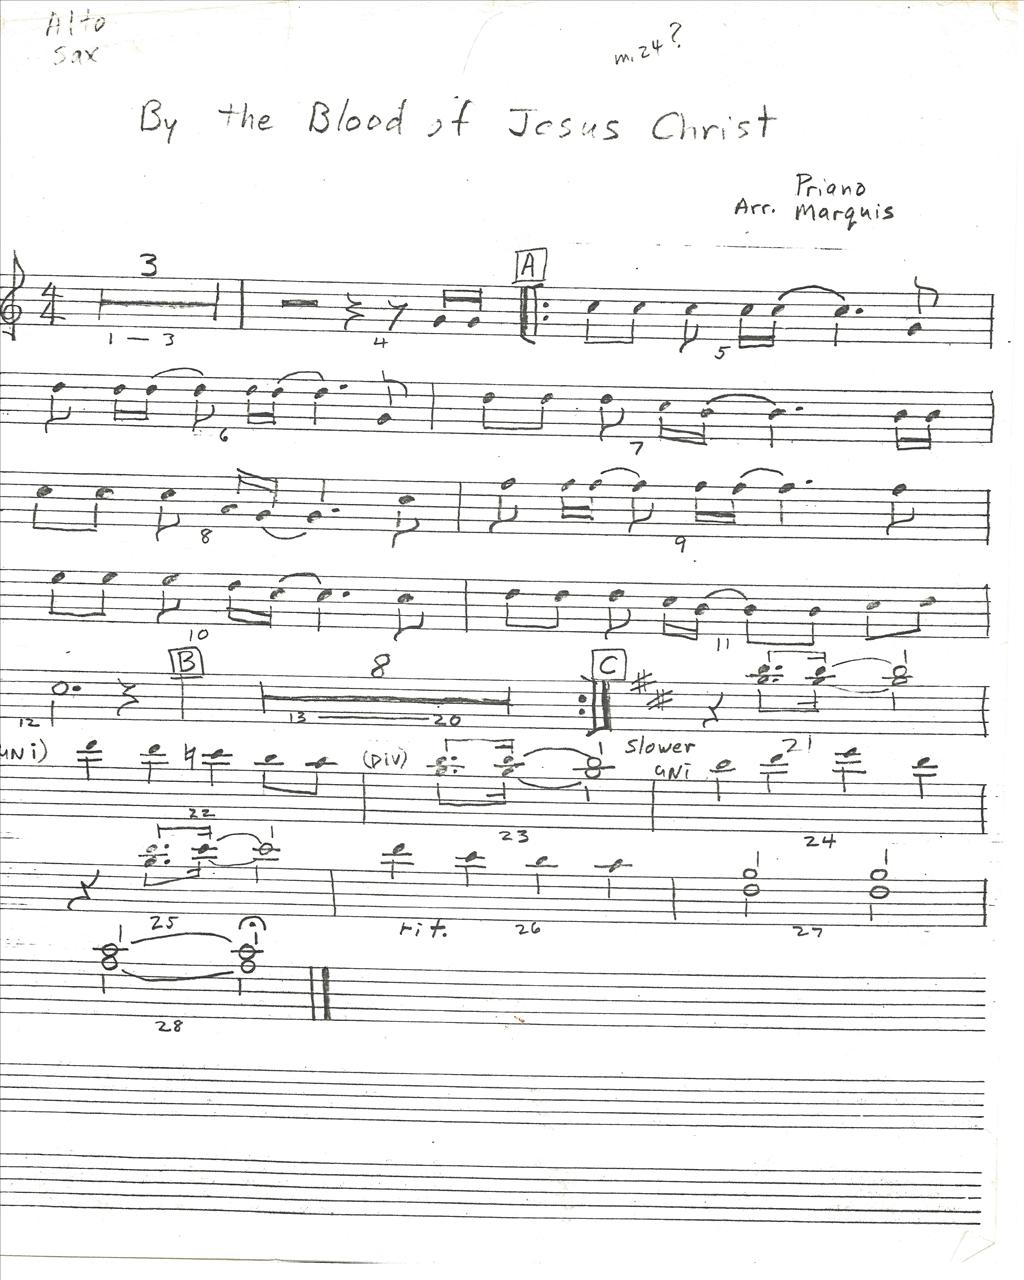 Alto
Sax
m.24?
By the Blood of Jesus Christ
Priano
Arr. Marquis
A
3
4
4
1 — 3
4
5
6
7
8
9
10
11
B
8
C
12
13 — 20
21
uni)
(Div)
Slower
uni
22
23
24
25
rit.
26
27
28